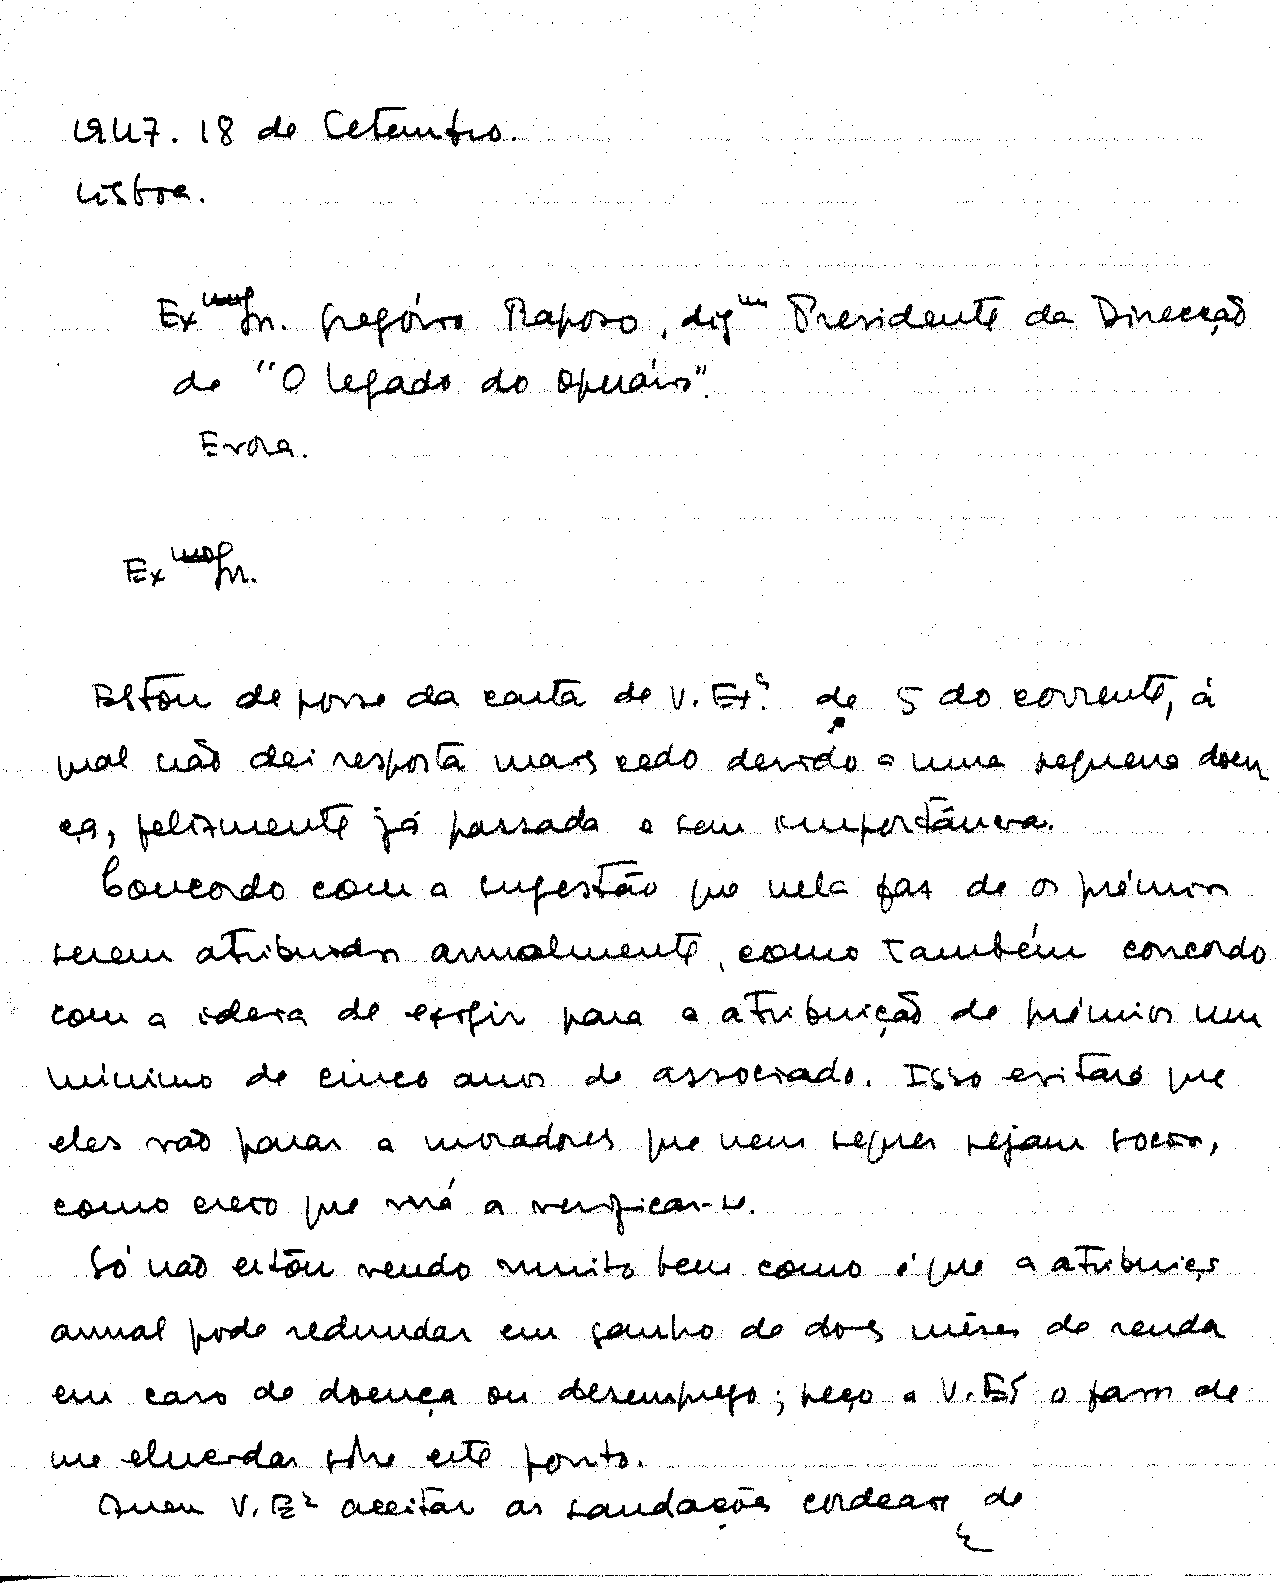 1947. 18 de Setembro.
Lisboa.
Exmo Sr. Gregório Raposo, digmo Presidente da Direcção
de "O Legado do Operário".
Evora.
Exmo Sr.
Estou de posse da carta de V. Exª. de 5 do corrente, á
qual não dei resposta mais cedo devido a uma pequena doen
ça, felizmente já passada e sem importância.
Concordo com a sugestão que nela faz de os prémios
serem atribuidos anualmente, como também concordo
com a ideia de exigir para a atribuição de prémios um
minimo de cinco anos de associado. Isso evitará que
eles vão parar a moradores que nem sequer sejam socios,
como creio que virá a verificar-se.
Só não estou vendo muito bem como é que a atribuição
anual pode redundar em ganho de dois mêses de renda
em caso de doença ou desemprego; peço a V. Exª o favor de
me elucidar sôbre este ponto.
Queira V. Exª aceitar as saudações cordeais de